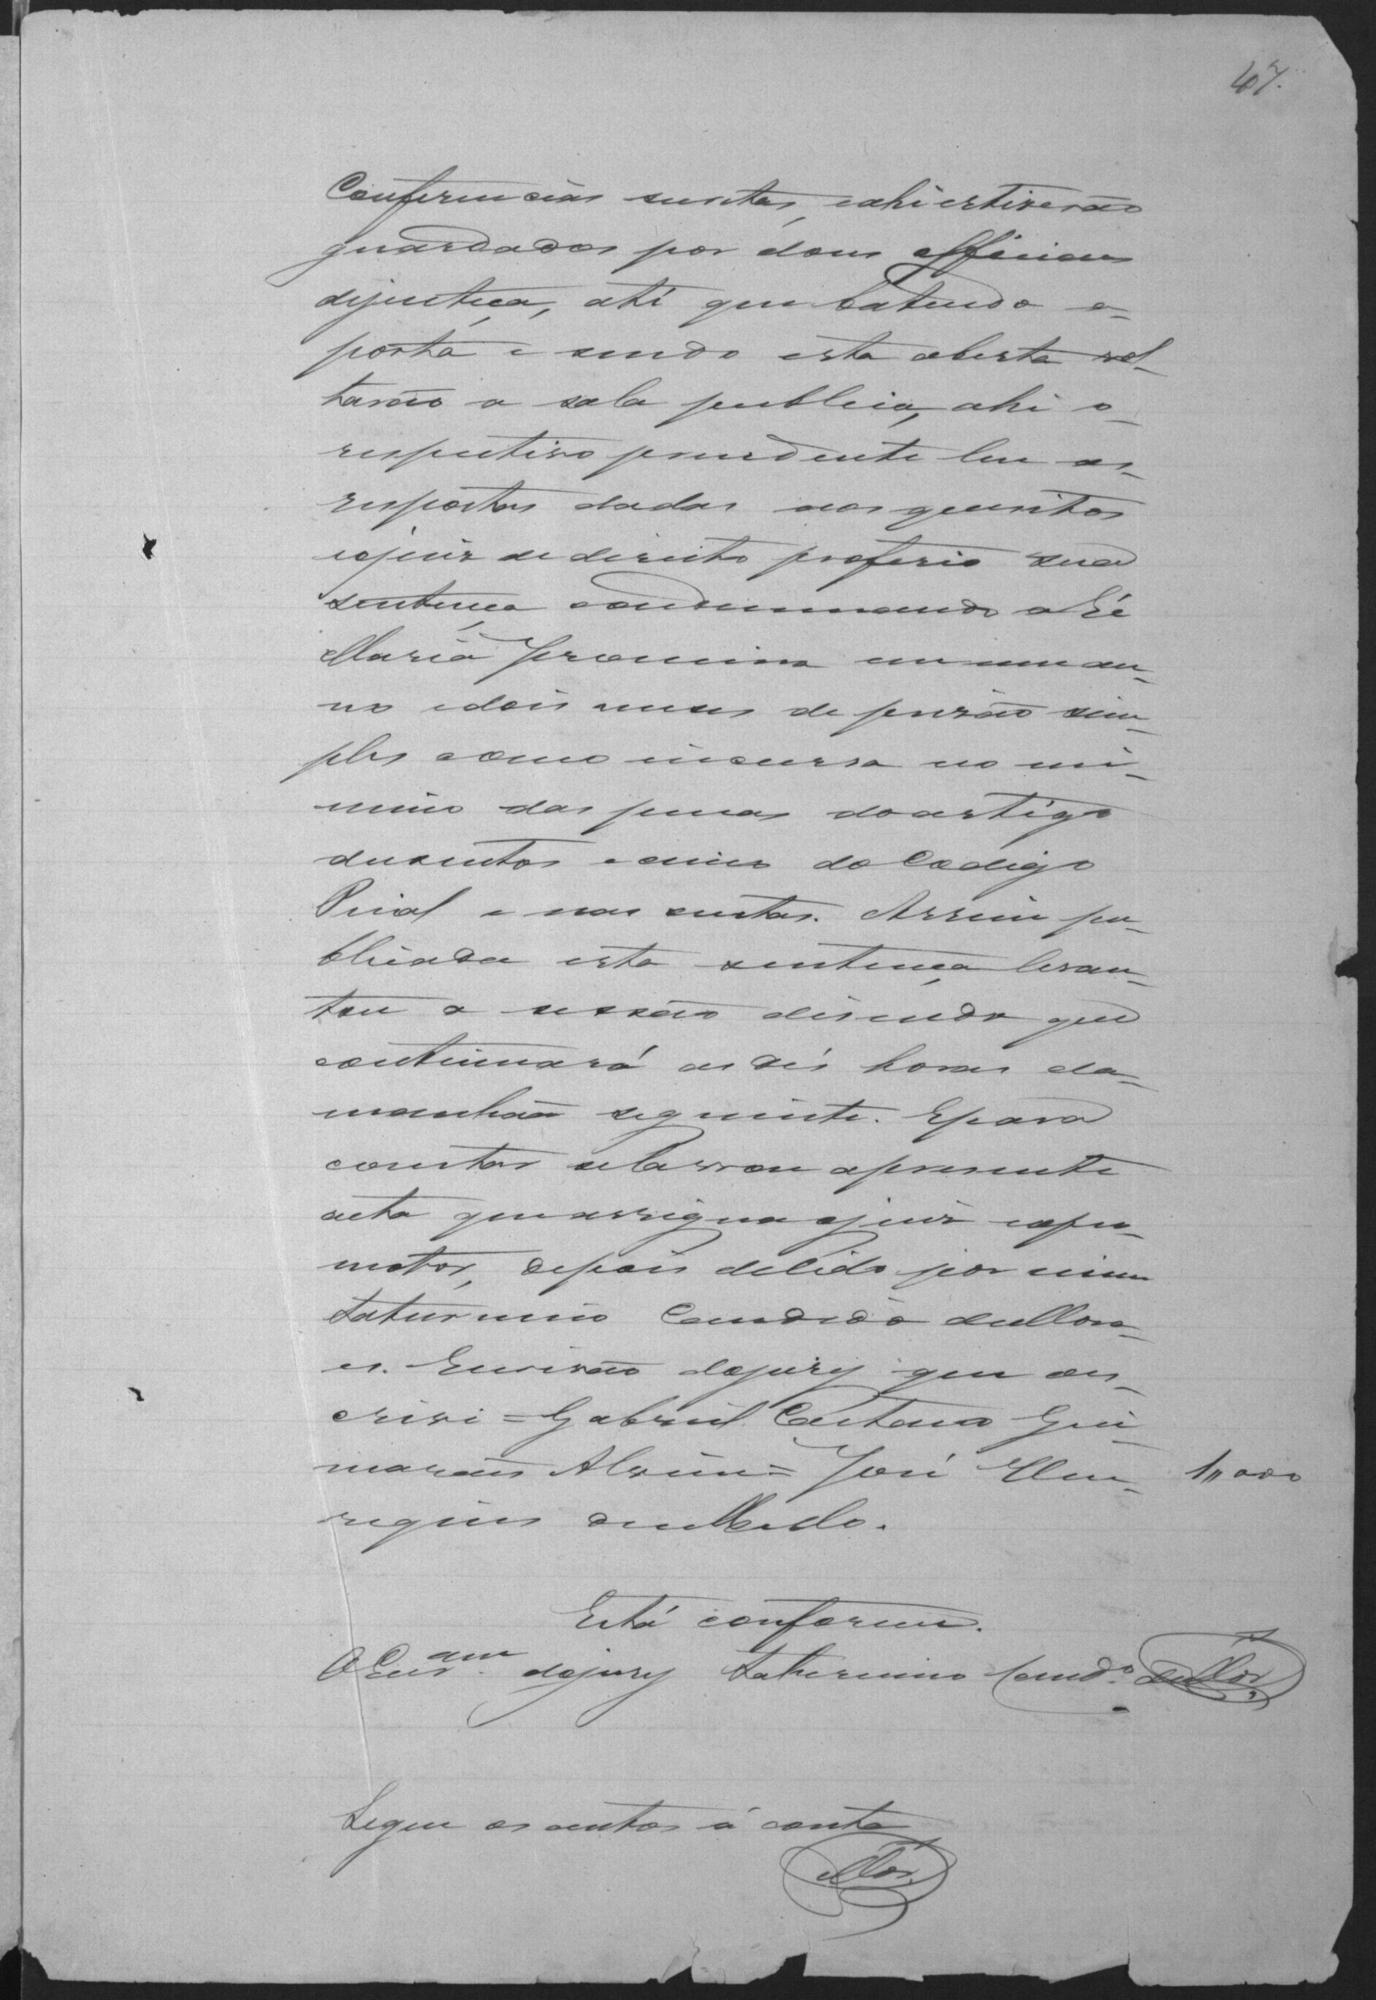 47.
Conferencias secretas, e ahi estiverão
guardados por dous officiaes
dejustiça, athi que batendo a
porta e sendo esta aberta vol-
tarão a sala publica, ahi o
respectivo presidente leu as
respostas dadas aos quesitos
eojuiz de direito proferio sua
sentença condemnando a Ré
Maria Jeronima em um an-
no edois meses de prisão sim-
ples como incursa no mi-
nimo das penas doartigo
dusentos e cinco do Codigo
Penal e nas custas. Assim pu-
blicada esta sentença levan-
tou a sessão disendo que
continuará as dés horas da
manhãa seguinte. Epara
constar selavrou apresente
acta queassigna ojuiz eopro-
motor, depois delido por mim
Saturnino Candido deMora-
es. Escrivão dojury que oes-
crivi = Gabriel Caetano Gui-
marães Alvim = José Hen-
riques de Mello.
1,,000
Está conforme.
OEscr.am dojury Saturnino Candº. deMor.
Segue os autos á conta
Mor.